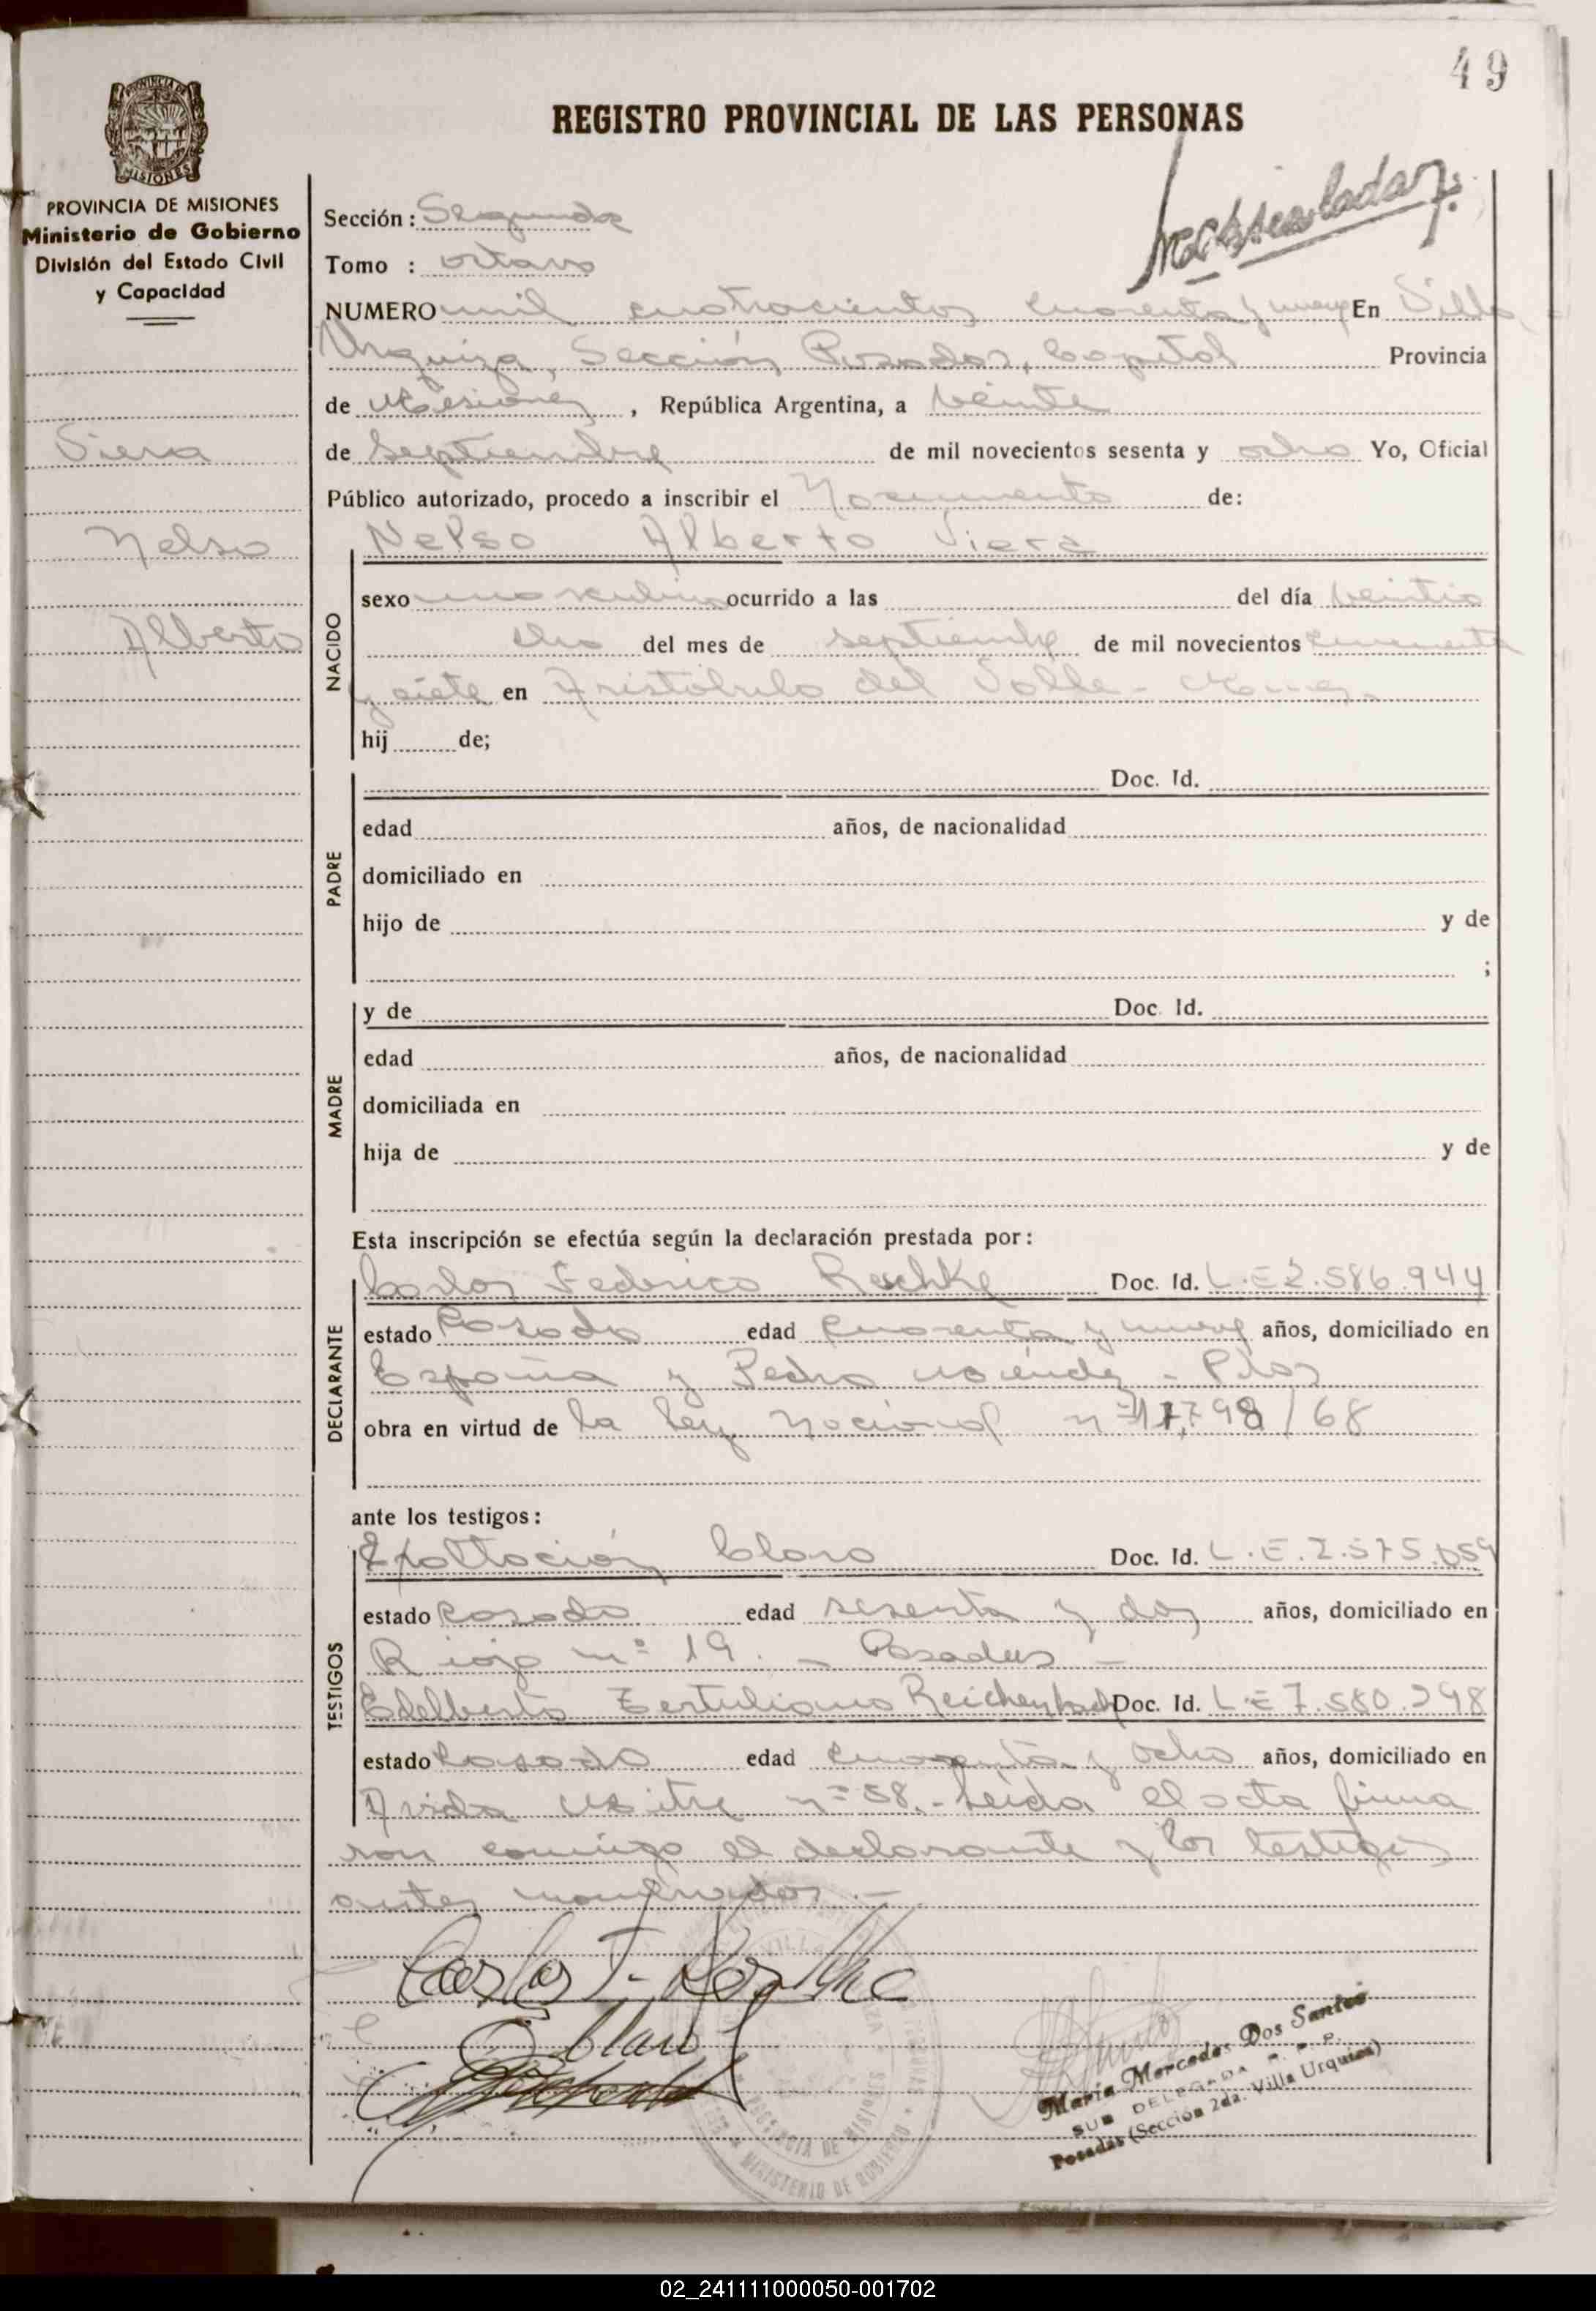 49
REGISTRO PROVINCIAL DE LAS PERSONAS
PROVINCIA DE MISIONES
Ministerio de Gobierno
División del Estado Civil
y Capacidad
Viera
Nelso
Alberto
Sección: Segunda
Tomo : octavo
NUMERO mil cuatrocientos cuarenta y nueve En Villa
Urquiza, Sección Posadas, Capital Provincia
de Misiones, República Argentina, a veinte
de Septiembre de mil novecientos sesenta y ocho Yo, Oficial
Público autorizado, procedo a inscribir el Nacimiento de:
NACIDO
Nelso Alberto Viera
sexo masculino ocurrido a las del día veintio
cho del mes de septiembre de mil novecientos cincuenta
y siete en Aristóbulo del Valle - Mnes.
hij de;
PADRE
Doc. Id.
edad años, de nacionalidad
domiciliado en
hijo de y de
;
MADRE
y de Doc. Id.
edad años, de nacionalidad
domiciliada en
hija de y de
Esta inscripción se efectúa según la declaración prestada por:
DECLARANTE
Carlos Federico Reschke Doc. Id. L.E 2.586.944
estado Casado edad cuarenta y nueve años, domiciliado en
España y Pedro Méndez - Pdas
obra en virtud de la ley Nacional nº 17.798/68
ante los testigos:
TESTIGOS
Exaltación Claro Doc. Id. L.E.2.575.059
estado casado edad sesenta y dos años, domiciliado en
Rioja nº 19. - Posadas -
Edelberto Tertuliano Reichenbach Doc. Id. L.E 7.580.298
estado Casado edad cuarenta y ocho años, domiciliado en
Avida Mitre nº 58.- Leída el acta firma
ron conmigo el declarante y los testigos
antes nombrados.-
Carlos F. Reschke
E Claro
María Mercedes Dos Santos
SUB DELEGADA R. P. P.
Posadas (Sección 2da. Villa Urquiza)
PROVINCIA DE MISIONES
MINISTERIO DE GOBIERNO
02_241111000050-001702